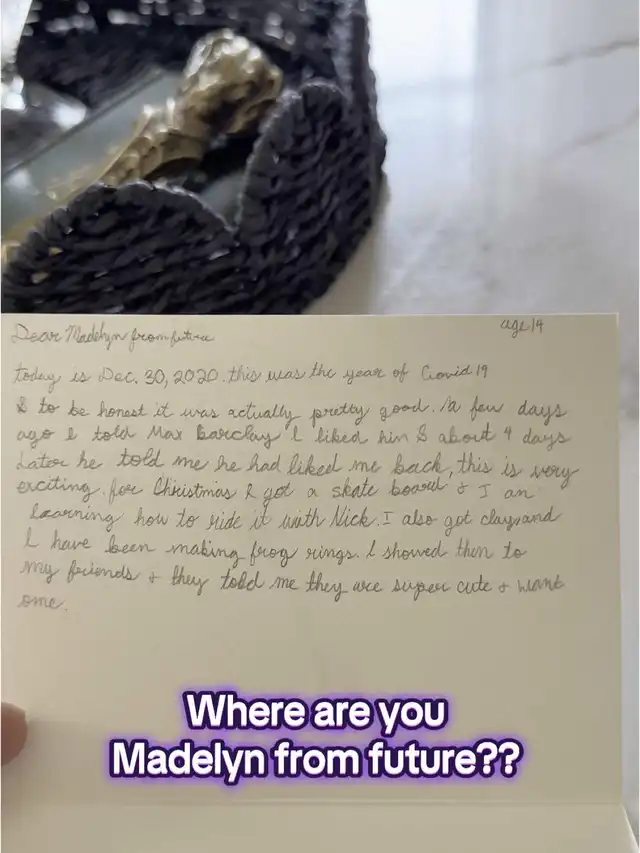 Dear Madelyn from future
age 14
today is Dec. 30, 2020. this was the year of Covid 19
& to be honest it was actually pretty good. A few days
ago I told Max Barclay I liked him & about 4 days
Later he told me he had liked me back, this is very
exciting. for Christmas I got a skate board & I an
learning how to ride it with Nick. I also got clay and
I have been making frog rings. I showed them to
my friends + they told me they are super cute + want
ome.
Where are you
Madelyn from future??